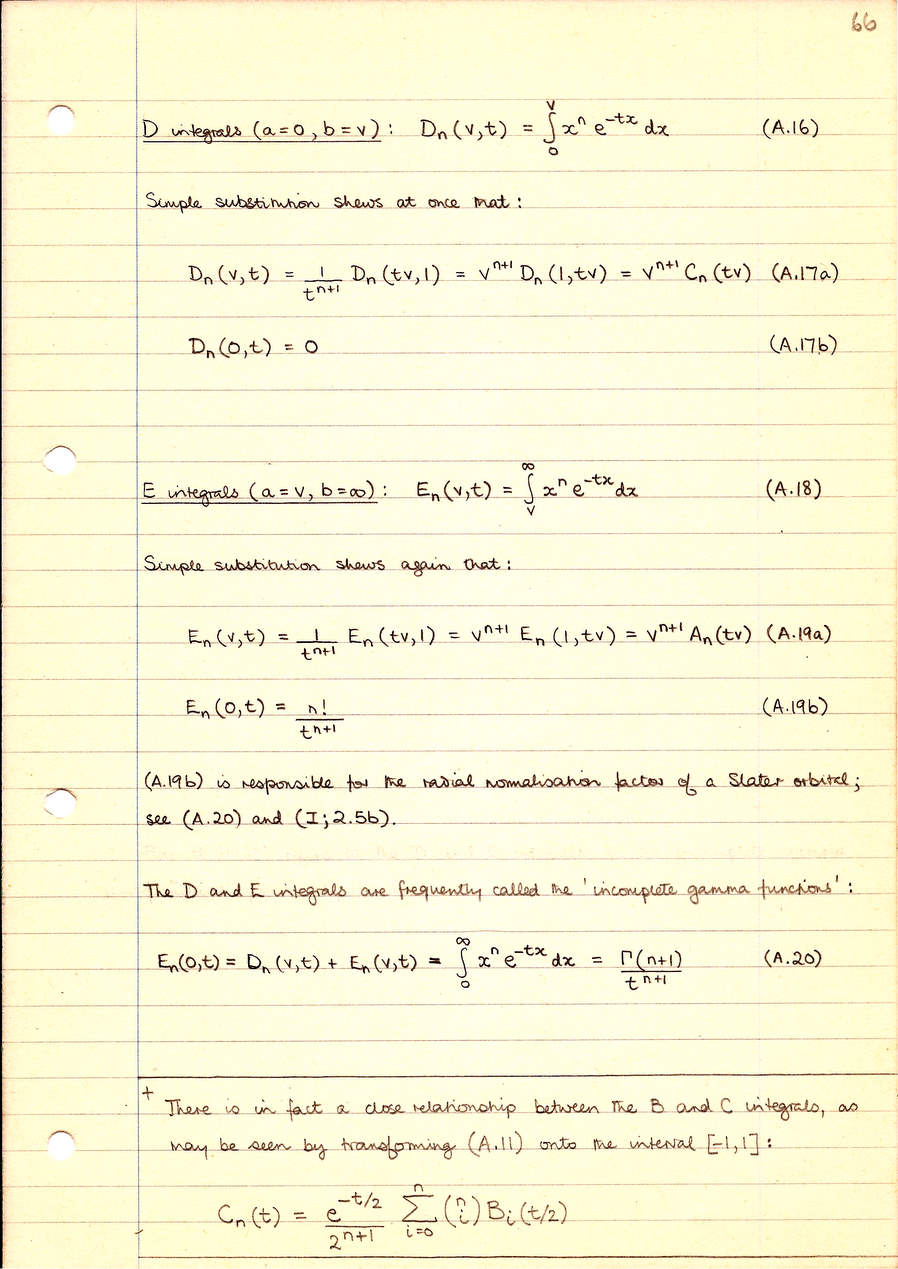 66
D integrals (a=0, b=v): Dₙ(v,t) = ∫₀ᵛ xⁿ e^{-tx} dx (A.16)
Simple substitution shews at once that:
Dₙ(v,t) = 1/t^{n+1} Dₙ(tv,1) = v^{n+1} Dₙ(1,tv) = v^{n+1} Cₙ(tv) (A.17a)
Dₙ(0,t) = 0 (A.17b)
E integrals (a=v, b=∞): Eₙ(v,t) = ∫ᵥ^∞ xⁿ e^{-tx} dx (A.18)
Simple substitution shews again that:
Eₙ(v,t) = 1/t^{n+1} Eₙ(tv,1) = v^{n+1} Eₙ(1,tv) = v^{n+1} Aₙ(tv) (A.19a)
Eₙ(0,t) = n!/t^{n+1} (A.19b)
(A.19b) is responsible for the radial normalisation factor of a Slater orbital;
see (A.20) and (I; 2.5b).
The D and E integrals are frequently called the 'incomplete gamma functions':
Eₙ(0,t) = Dₙ(v,t) + Eₙ(v,t) = ∫₀^∞ xⁿ e^{-tx} dx = Γ(n+1)/t^{n+1} (A.20)
+ There is in fact a close relationship between the B and C integrals, as
may be seen by transforming (A.11) onto the interval [-1,1]:
Cₙ(t) = e^{-t/2}/2^{n+1} Σ_{i=0}^{n} (n i) Bᵢ(t/2)